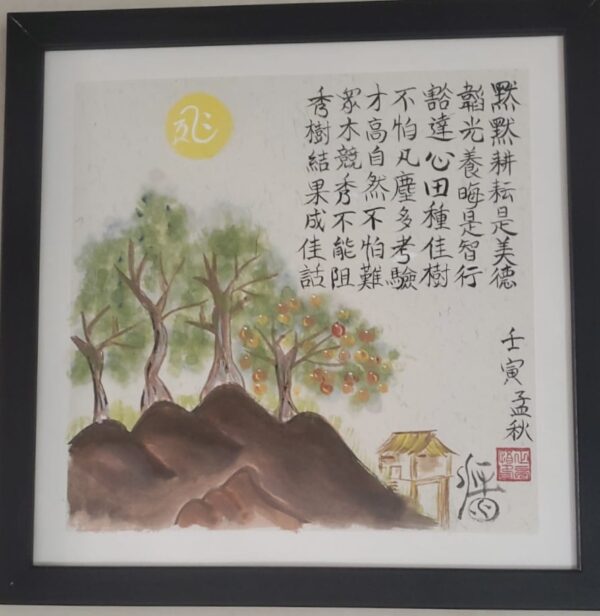 默默耕耘是美德
韜光養晦是智行
豁達心田種佳樹
不怕凡塵多考驗
才高自然不怕難
眾木競秀不能阻
秀樹結果成佳話
壬寅孟秋